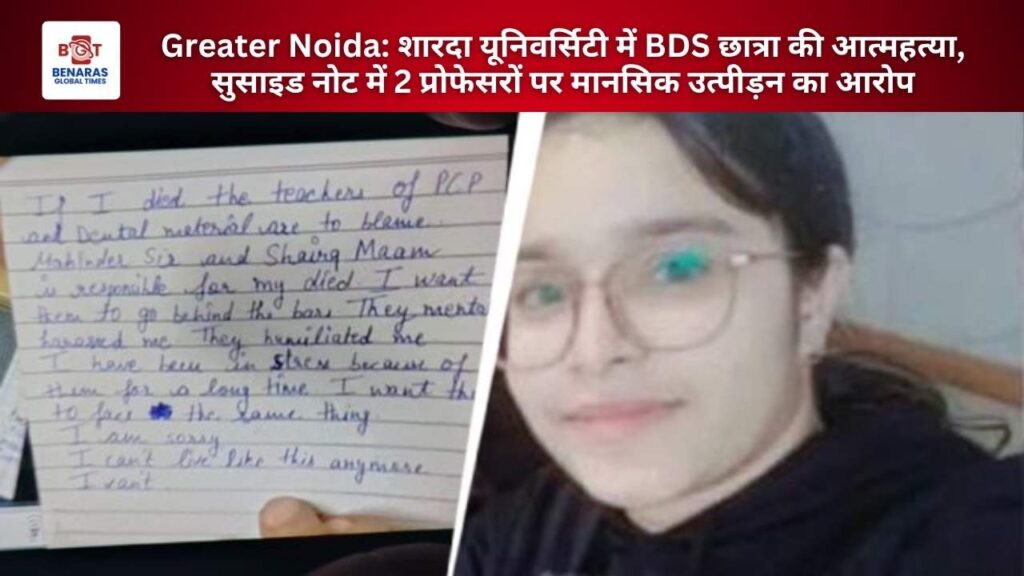 BGT
BENARAS
GLOBAL TIMES
Greater Noida: शारदा यूनिवर्सिटी में BDS छात्रा की आत्महत्या,
सुसाइड नोट में 2 प्रोफेसरों पर मानसिक उत्पीड़न का आरोप
If I died the teachers of PCP
and Dental material are to blame.
Mahinder Sir and Shairq Maam
is responsible for my died I want
them to go behind the bars They menta
harassed me They humiliated me
I have been in stress because of
them for a long time I want the
to face the same thing.
I am sorry
I can't live like this anymore
I want